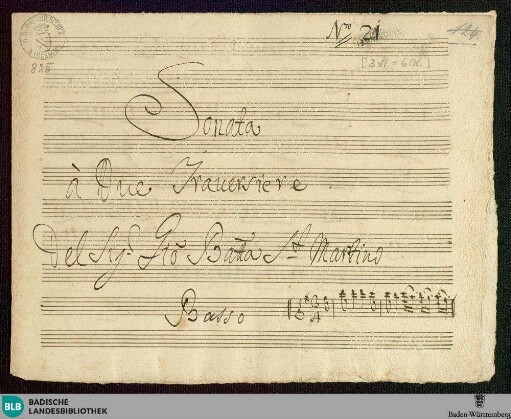 Nro 21
825
Sonata
à Due Traversiere
Del Sigr. Gio Batta St. Martino
Basso
BLB BADISCHE
LANDESBIBLIOTHEK
Baden-Württemberg